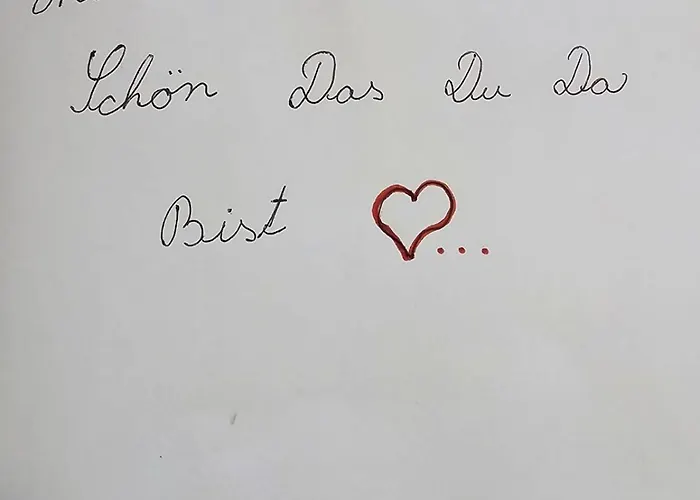 Schön Das Du Da
Bist ♥...